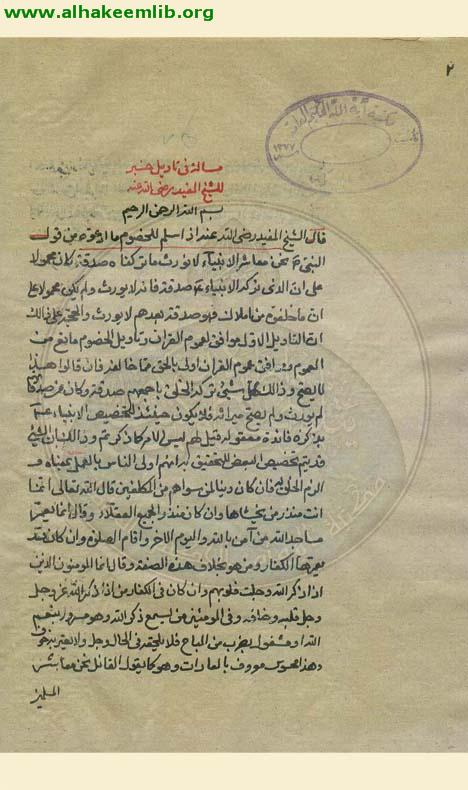 www.alhakeemlib.org
٢
مكتبة آية الله الحكيم العامة
١٣٧٧
رسالة في تاويل خبر
للشيخ المفيد رضي الله عنه
بسم الله الرحمن الرحيم
قال الشيخ المفيد رضي الله عنه اذا سلم للخصوم ما ادعوه من قول
النبي ع نحن معاشر الانبياء لا نورث ما تركناه صدقة كان محمولا
على ان الذي تركه الانبياء ع صدقة فانه لا يورث ولم يكن محمولا على
ان ما خلفوه من املاك فهو صدقة بعدهم لا يورث والحجة على ذلك
ان التاويل الاول موافق لعموم القران وتاويل الخصوم مانع من
العموم وما وافق عموم القران اولى بالحق مما خالفه فان قالوا هذا
لا يصح وذلك ان كل شئ تركه الخلق باجمعهم صدقة وكان من صدقاتهم
لم يورث ولم يصح ميراثه فلا يكون حينئذ لتخصيص الانبياء ع
بذكره فائدة معقولة قيل لهم ليس الامر كما ذكرتم وذلك ان الشئ
قد يعم بتخصيص البعض للتحقيق به انهم اولى الناس بالعمل بمعناه و
الزم الخلق له وان كان دينا لمن سواهم من المكلفين قال الله تعالى انما
انت منذر من يخشاها وان كان منذرا لجميع العقلاء وقال انما يعمر
مساجد الله من آمن بالله واليوم الآخر واقام الصلوة وان كان قد
يعمرها الكفار ومن هو بخلاف هذه الصفة وقال انما المومنون الذين
اذا ذكر الله وجلت قلوبهم وان كان في الكفار من اذا ذكر الله عز وجل
وجل قلبه وخاف وفي المومنين من يسمع ذكر الله وهو مسرور بنعم
الله او مشغول بضرب من المباح فلا يلحقه في الحال وجل ولا يعتريه خوف
وهذا محسوس معروف بالعادات وهو كما يقول القائل نحن معاشر
المسلمين